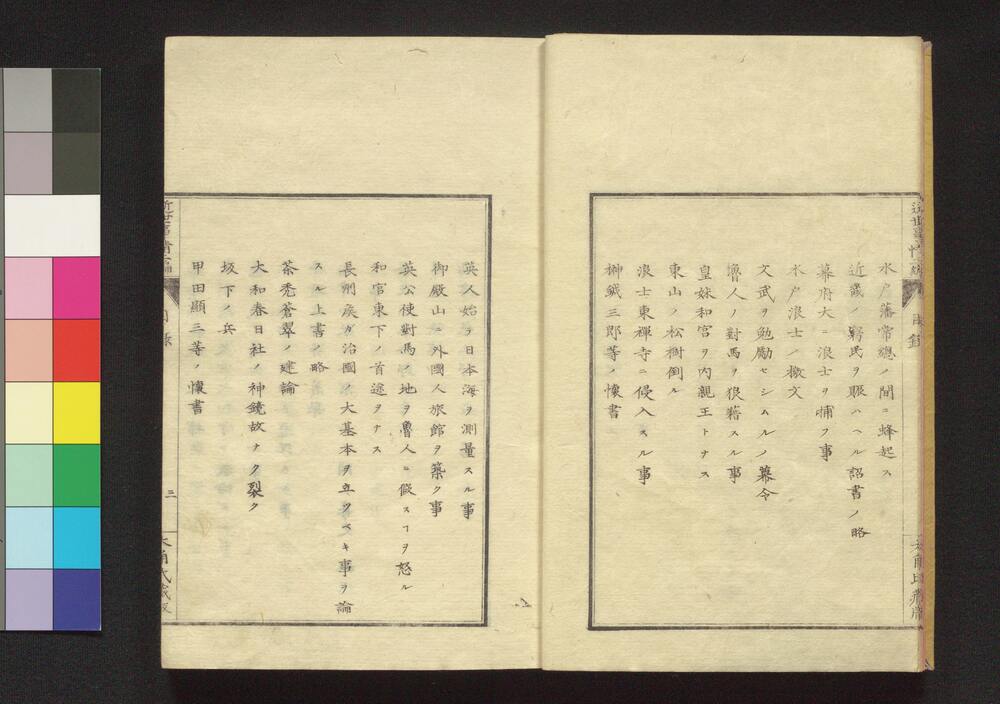 水戸藩常總ノ間ニ蜂起ス
近畿ノ窮民ヲ賑ハヘル詔書ノ略
幕府大ニ浪士ヲ捕フ事
水戸浪士ノ檄文
文武ヲ勉勵セシムルノ幕令
魯人ノ對馬ヲ狼藉スル事
皇妹和宮ヲ内親王トナス
東山ノ松樹倒ル
浪士東禪寺ニ侵入スル事
榊鉞三郎等ノ懐書
英人始ヲ日本海ヲ測量スル事
御殿山ニ外國人旅館ヲ築ク事
英公使對馬ノ地ヲ魯人ニ假スヿヲ怒ル
和宮東下ノ首途ヲナス
長州矦ガ治國ノ大基本ヲ立ツベキ事ヲ論
スル上書ノ略
茶禿蒼翠ノ建論
大和春日社ノ神鏡故ナク裂ク
坂下ノ兵
甲田顯三等ノ懐書
三